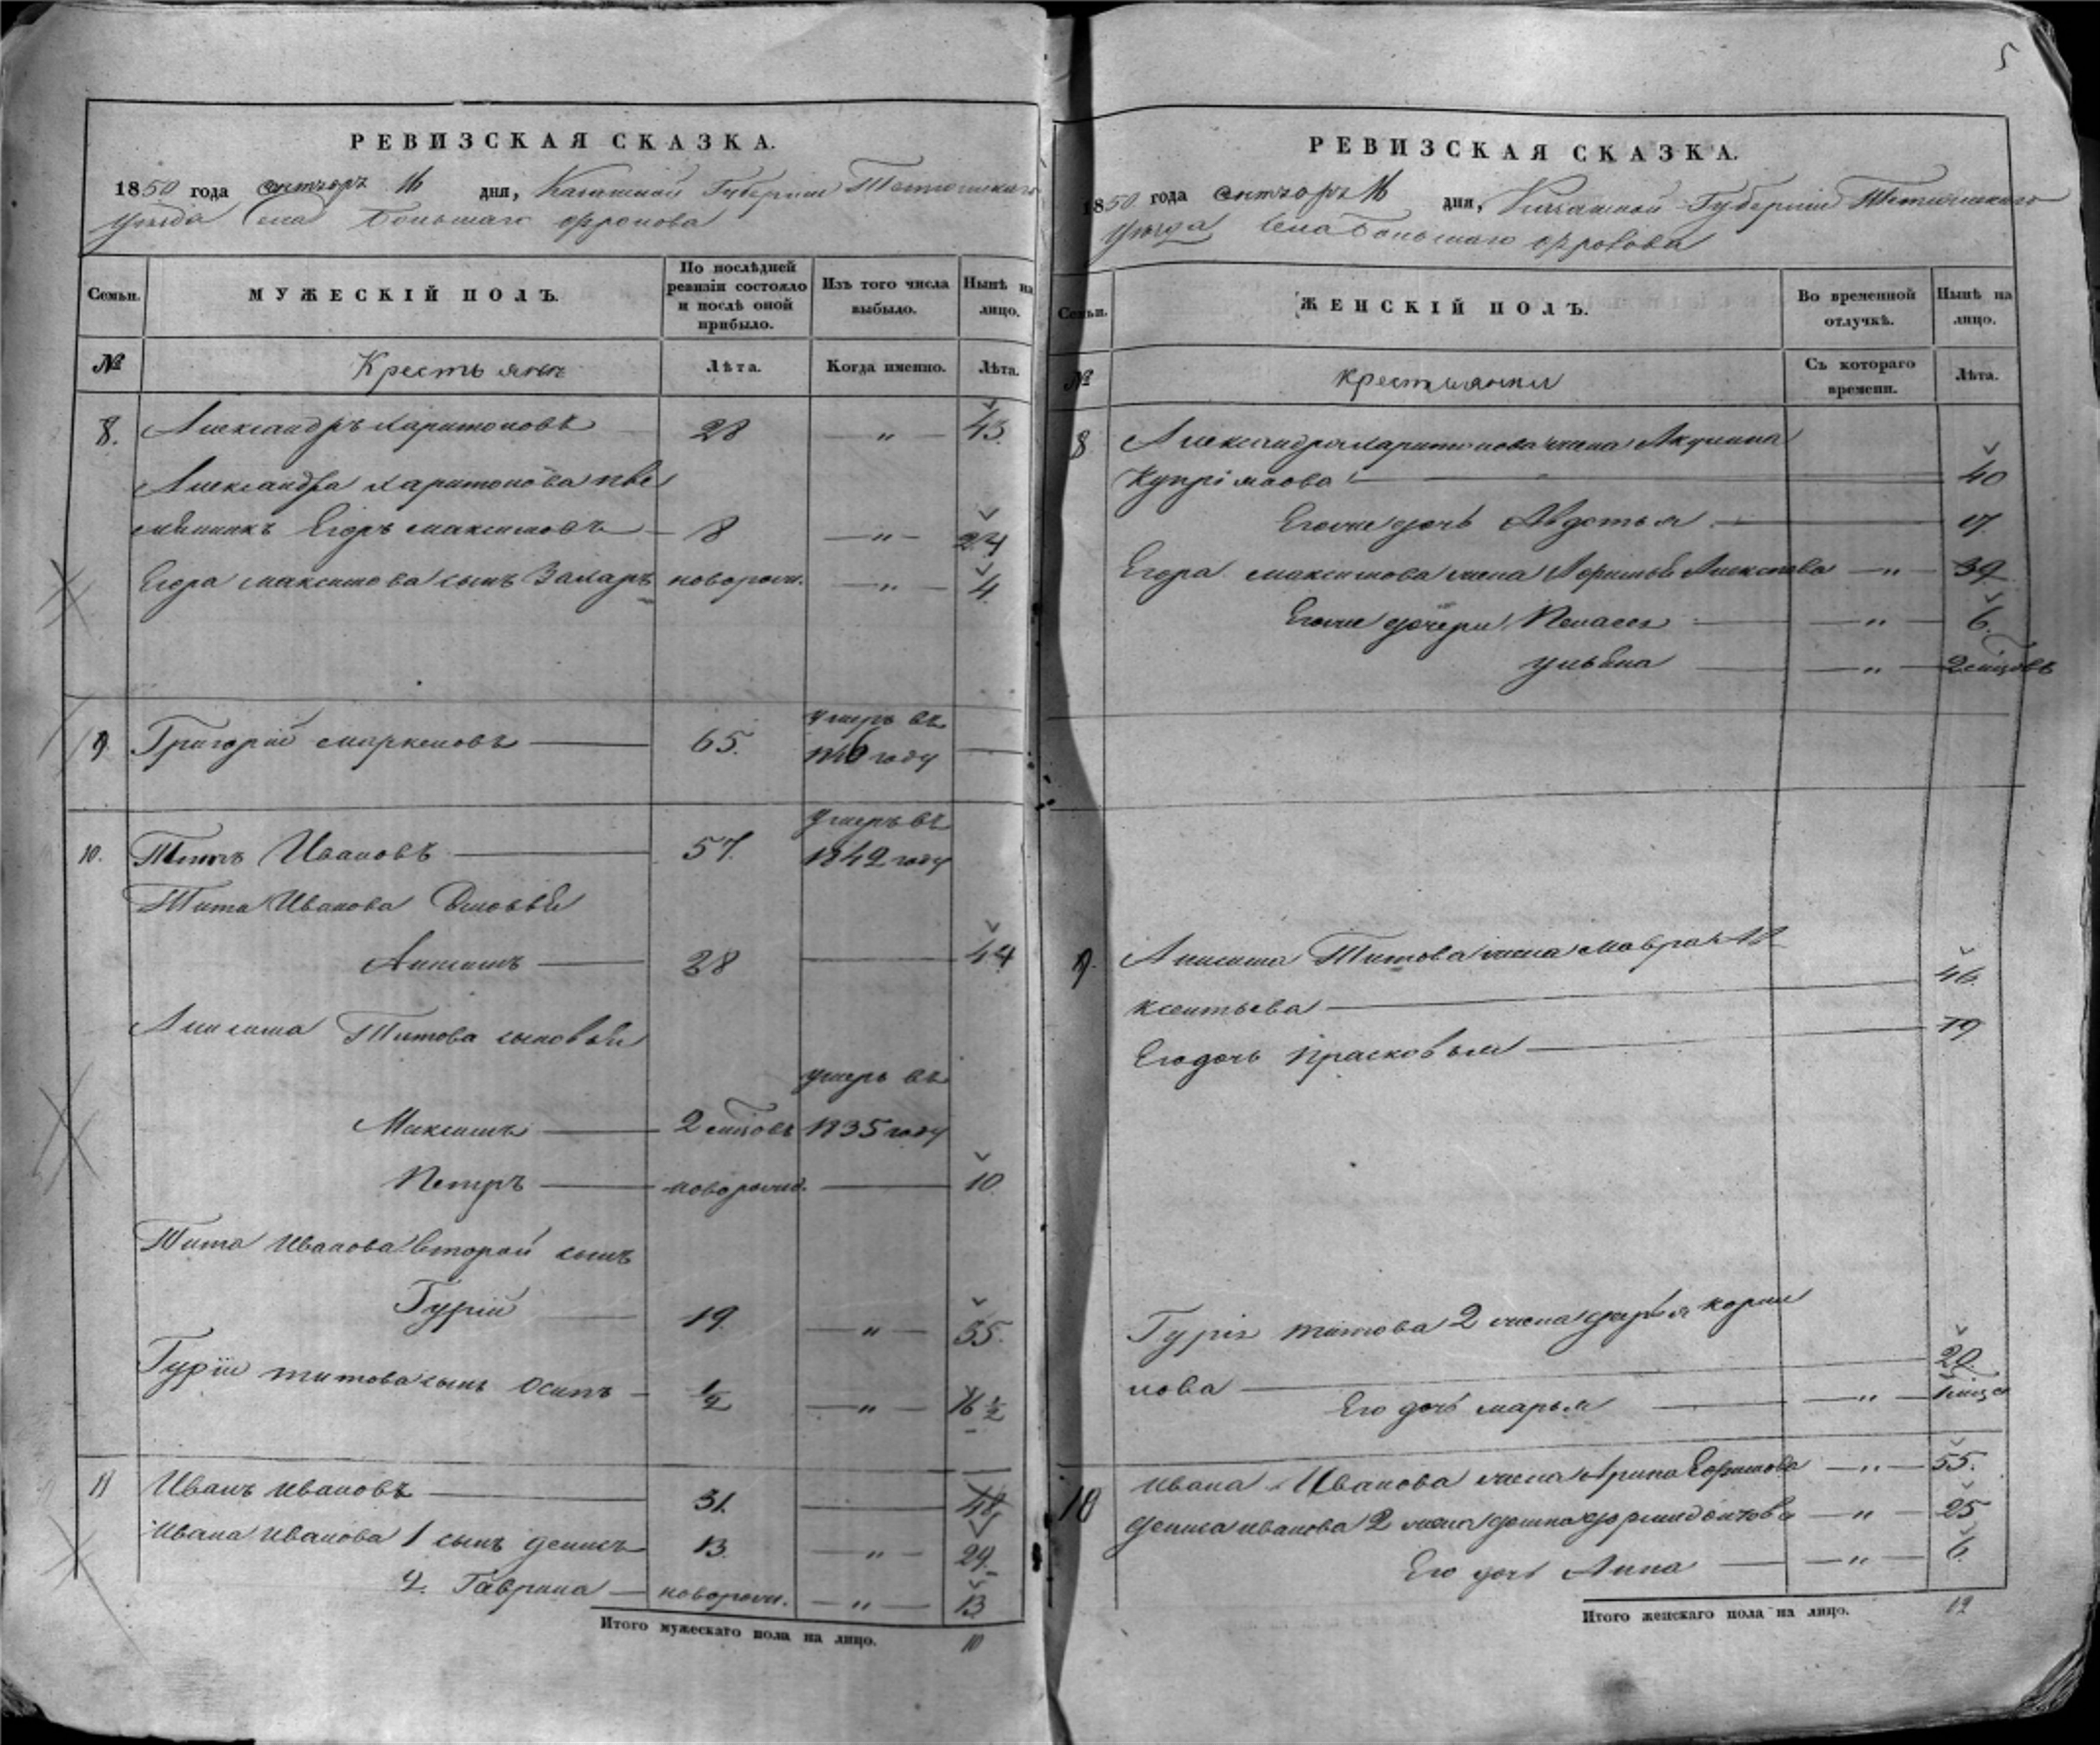 5
РЕВИЗСКАЯ СКАЗКА.
1850 года октября 16 дня, Казанской Губернии Тетюшскаго
уезда Села Большаго Фролова
Семьи.
МУЖЕСКІЙ ПОЛЪ.
По послѣдней ревизіи состояло и послѣ оной прибыло.
Изъ того числа выбыло.
Нынѣ на лицо.
№
Крестьяне
Лѣта.
Когда именно.
Лѣта.
8. Александръ Харитоновъ 28 — " — 43.
Александра Харитонова пле
мянникъ Егоръ Максимовъ — 8 — " — 24
Егора Максимова сынъ Захаръ новорож. — " — 4.
умеръ въ
9. Григорій Маркеловъ — 65. 1846 году —
умеръ въ
10. Титъ Ивановъ — 57. 1842 году
Тита Иванова сыновья
Анисимъ — 28 — 44
Анисима Титова сыновья
умеръ въ
Максимъ — 2 мѣсцовъ 1835 году
Петръ — новорожд. — 10.
Тита Иванова второй сынъ
Гурій — 19. — " — 35.
Гурія Титова сынъ Осипъ — 1/2 — " — 16 1/2
11 Иванъ Ивановъ — 31. — 48,
Ивана Иванова 1 сынъ Денисъ 13. — " — 29.
2. Гаврила — новорож. — " — 13
Итого мужескаго пола на лицо. 10
РЕВИЗСКАЯ СКАЗКА.
1850 года октября 16 дня, Казанской Губерніи Тетюшскаго
уезда Села Большаго Фролова
Семьи.
ЖЕНСКІЙ ПОЛЪ.
Во временной отлучкѣ.
Нынѣ на лицо.
№
крестьянки
Съ котораго времени.
Лѣта.
8 Александра Харитонова жена Акулина
Купріянова — 40
Егоже дочь Авдотья — 17.
Егора Максимова жена Алексѣева — " — 39
Егоже дочери Пелагея — " — 6.
Ульяна — " — 2 мѣсцовъ
9. Анисима Титова жена Мавра Ав
ксентьева — 46.
Его дочь Прасковья — 19
Гурія Титова 2 жена Дарья Корни
лова — 20.
Его дочь Марья — " — 1 мѣсца
10 Ивана Иванова жена Арина Ефимова — " — 55.
Дениса Иванова 2 жена — " — 25
Его дочь Анна — " — 6.
Итого женскаго пола на лицо. 12